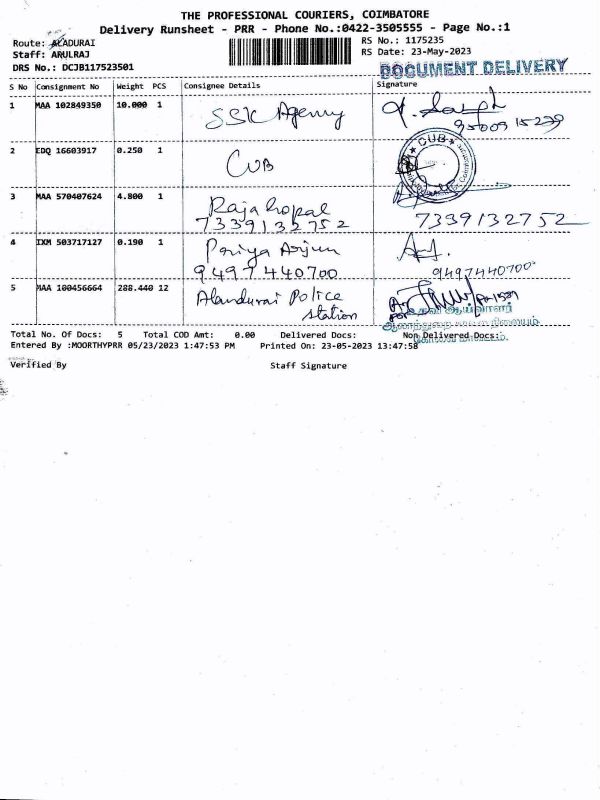 THE PROFESSIONAL COURIERS, COIMBATORE
Delivery Runsheet - PRR - Phone No.:0422-3505555 - Page No.:1
Route: ALADURAI
RS No.: 1175235
Staff: ARULRAJ
RS Date: 23-May-2023
DRS No.: DCJB117523501
DOCUMENT DELIVERY
S No Consignment No Weight PCS Consignee Details Signature
1 MAA 102849350 10.000 1 SSK Agency
2 EDQ 16603917 0.250 1 CUB
CUB
3 MAA 570407624 4.800 1 Rajagopal
7339132752 7339132752
4 IXM 503717127 0.190 1 Priya Arjun
9497440700 9497440700
5 MAA 100456664 288.440 12 Alandurai Police
station
Total No. Of Docs: 5 Total COD Amt: 0.00 Delivered Docs: Non Delivered Docs:
Entered By :MOORTHYPRR 05/23/2023 1:47:53 PM Printed On: 23-05-2023 13:47:58
Verified By Staff Signature